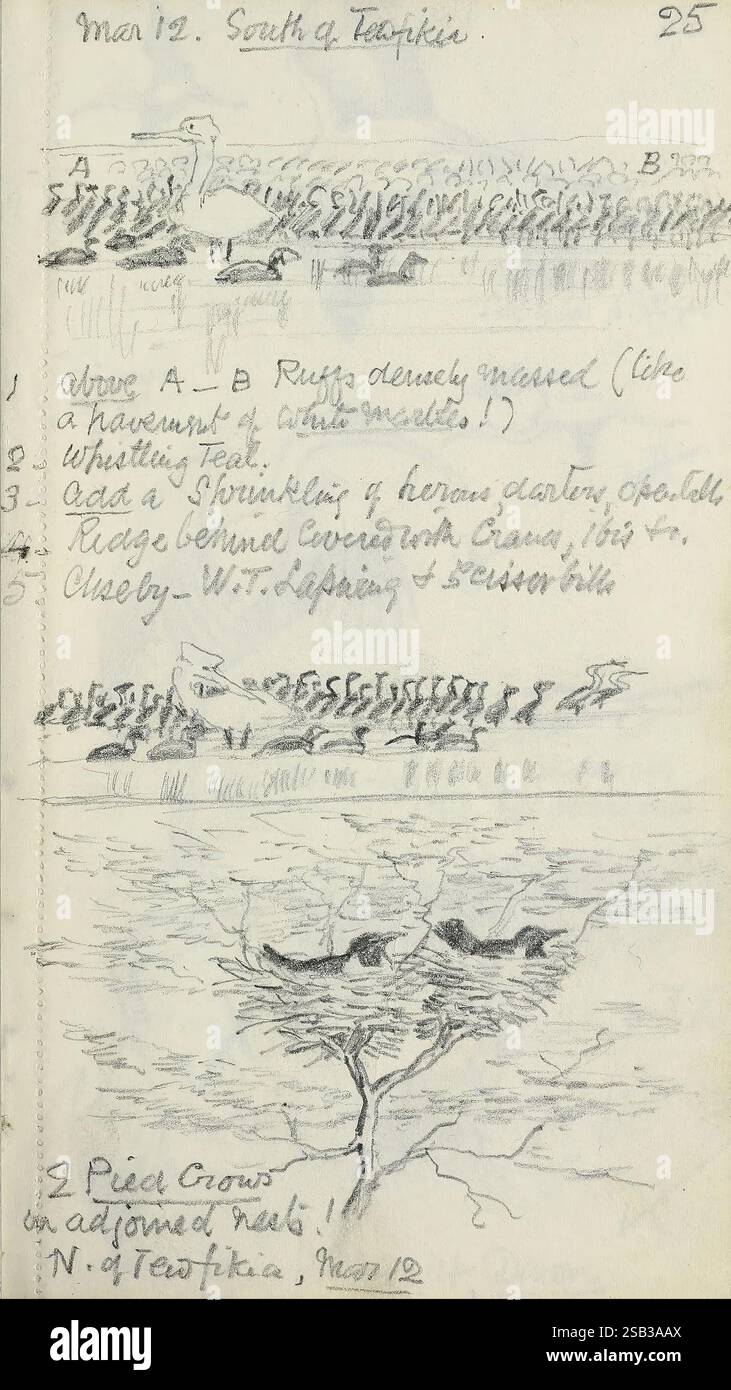 Mar 12. South of Tewfikia. 25
A B
1 above A – B Ruffs densely massed (like
a pavement of white marbles!)
2 – Whistling Teal.
3 – add a Sprinkling of herons, darters, openbills
4 – Ridge behind Covered with Cranes, ibis &c.
5 Closeby – W.T. Lapwing & Scissorbills
2 Pied Crows
on adjoined nests!
N. of Tewfikia, Mar 12
alamy
alamy
alamy
a
a
a
a
a
alamy
Image ID: 2SB3AAX
www.alamy.com